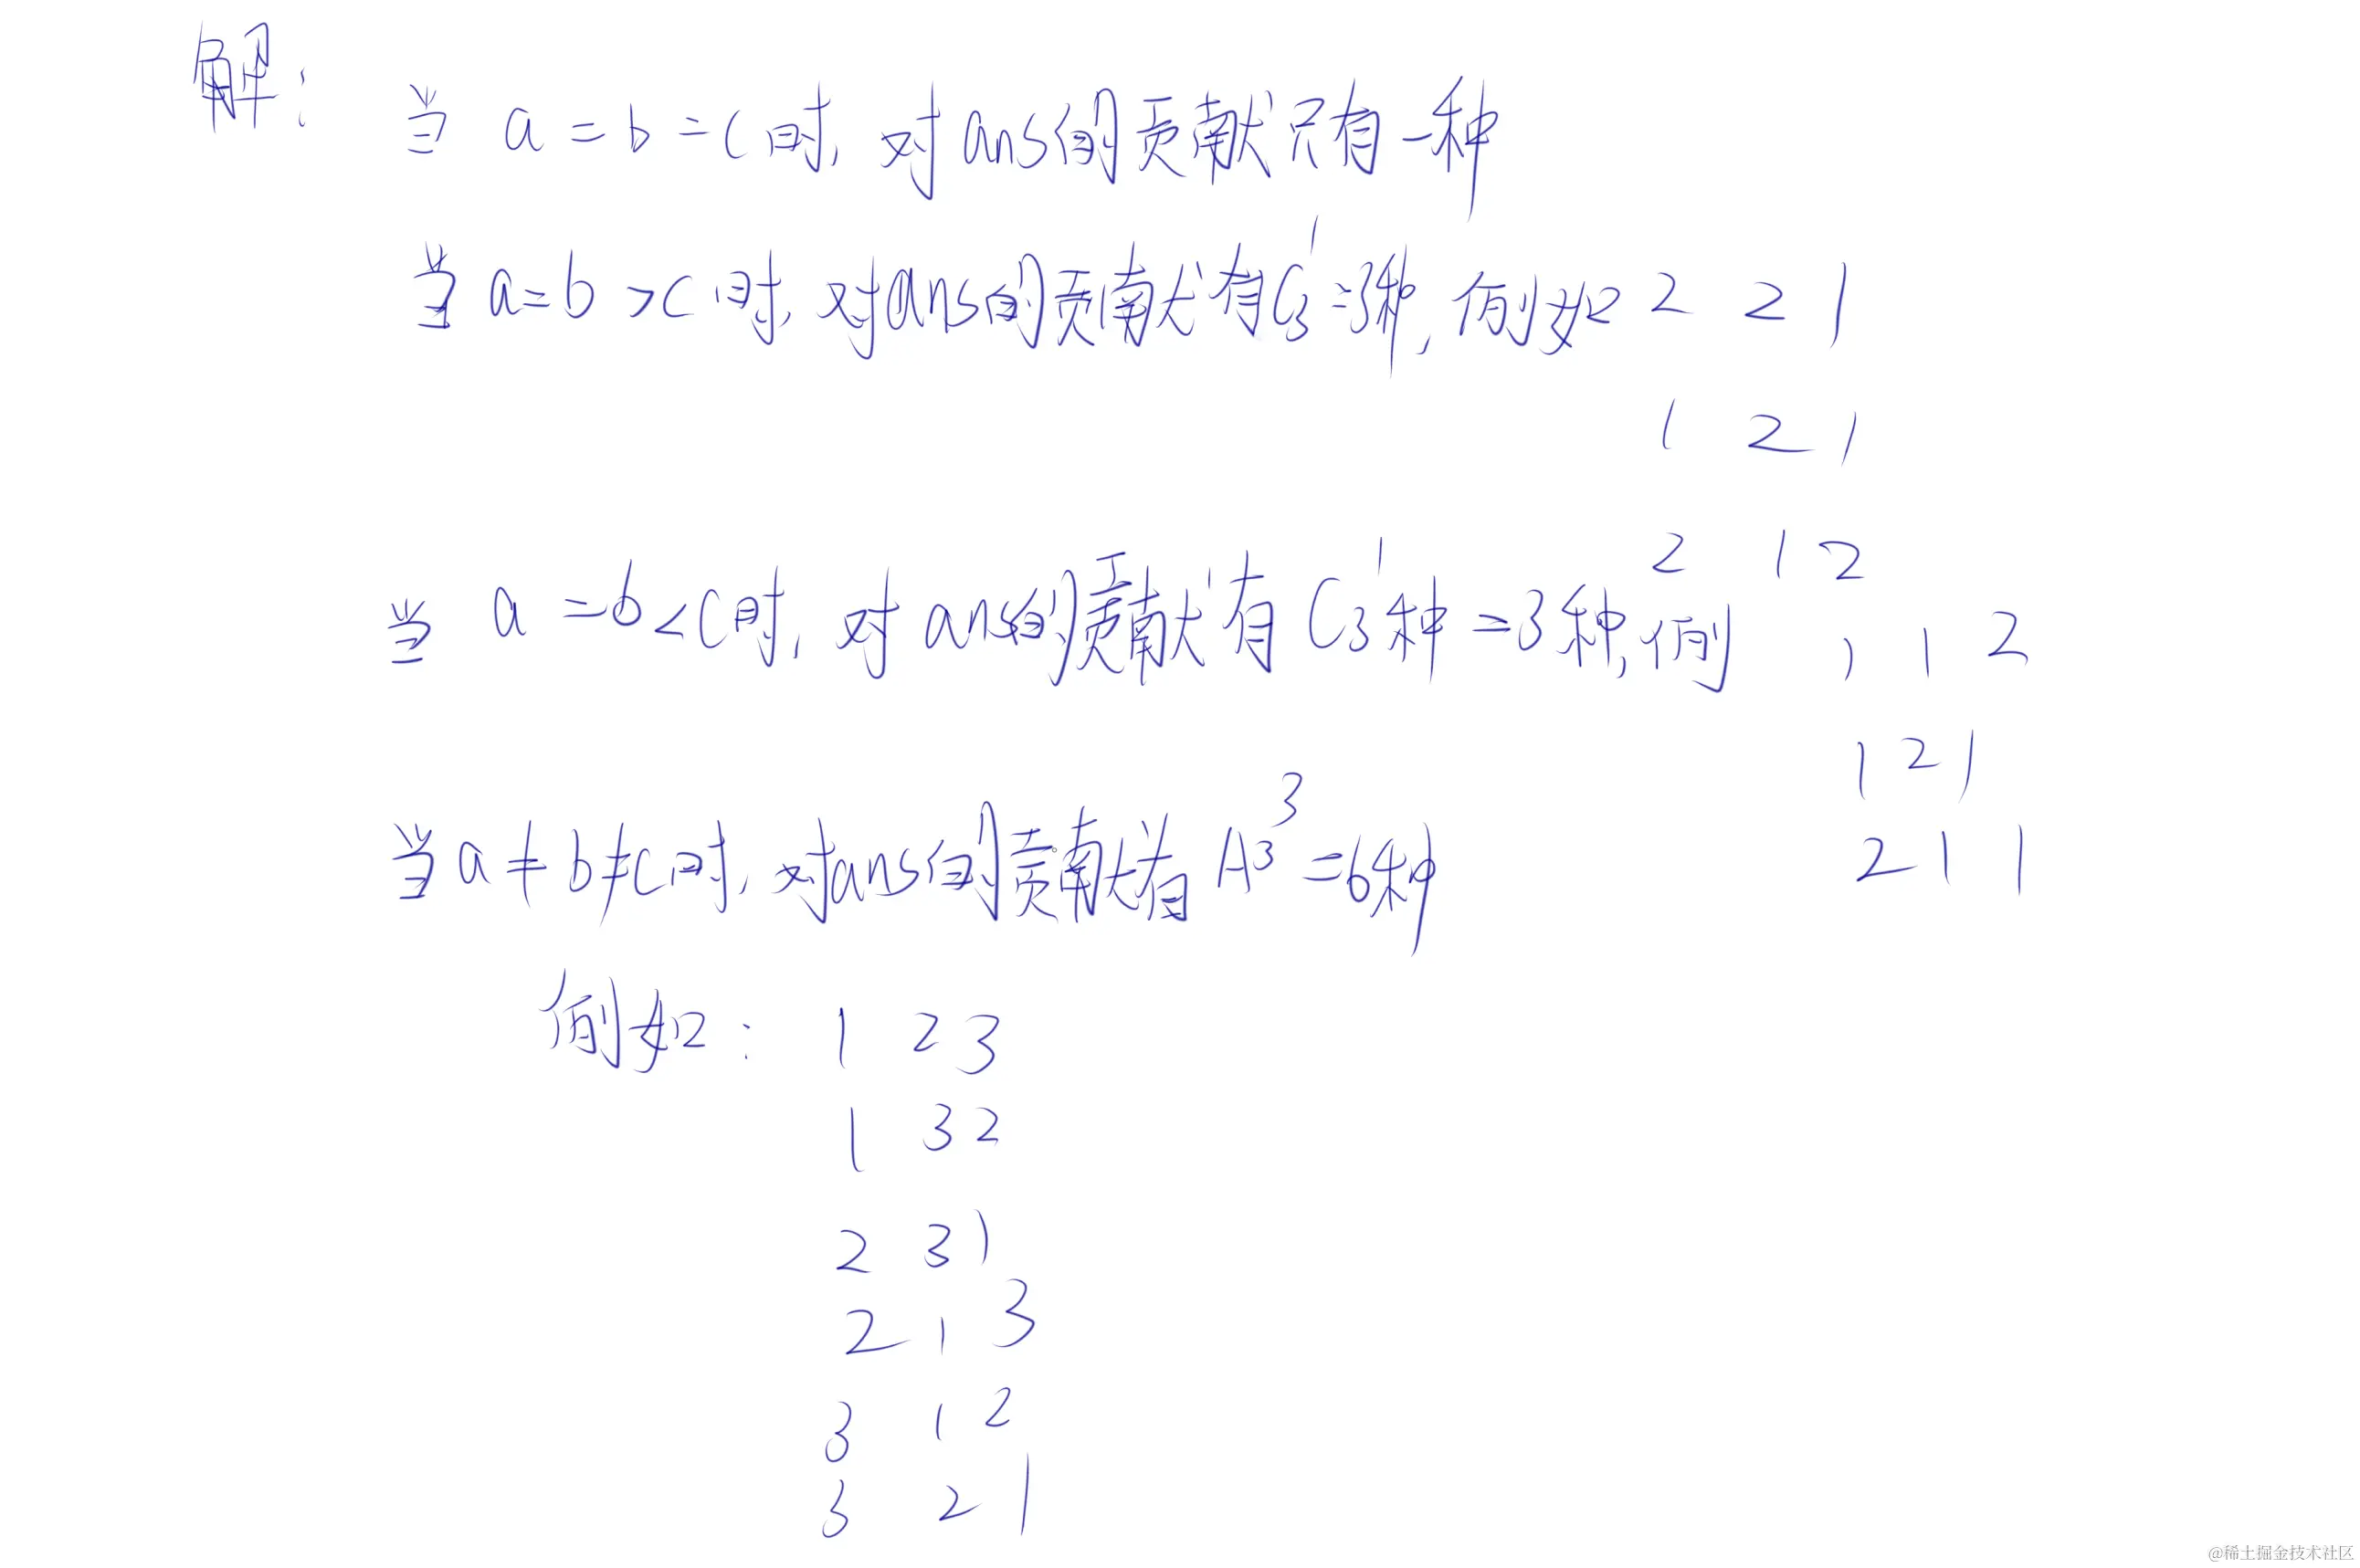 解：
当 a = b = c 时，对ans的贡献只有一种
当 a = b > c 时，对ans的贡献有C₃¹=3种，例如 2 2 1
1 2 1
2 1 2
当 a = b < c 时，对ans的贡献有 C₃¹种 = 3种，例 1 1 2
1 2 1
2 1 1
当 a ≠ b ≠ c 时，对ans的贡献有 A₃³ = 6种
例如： 1 2 3
1 3 2
2 3 1
2 1 3
3 1 2
3 2 1
@稀土掘金技术社区